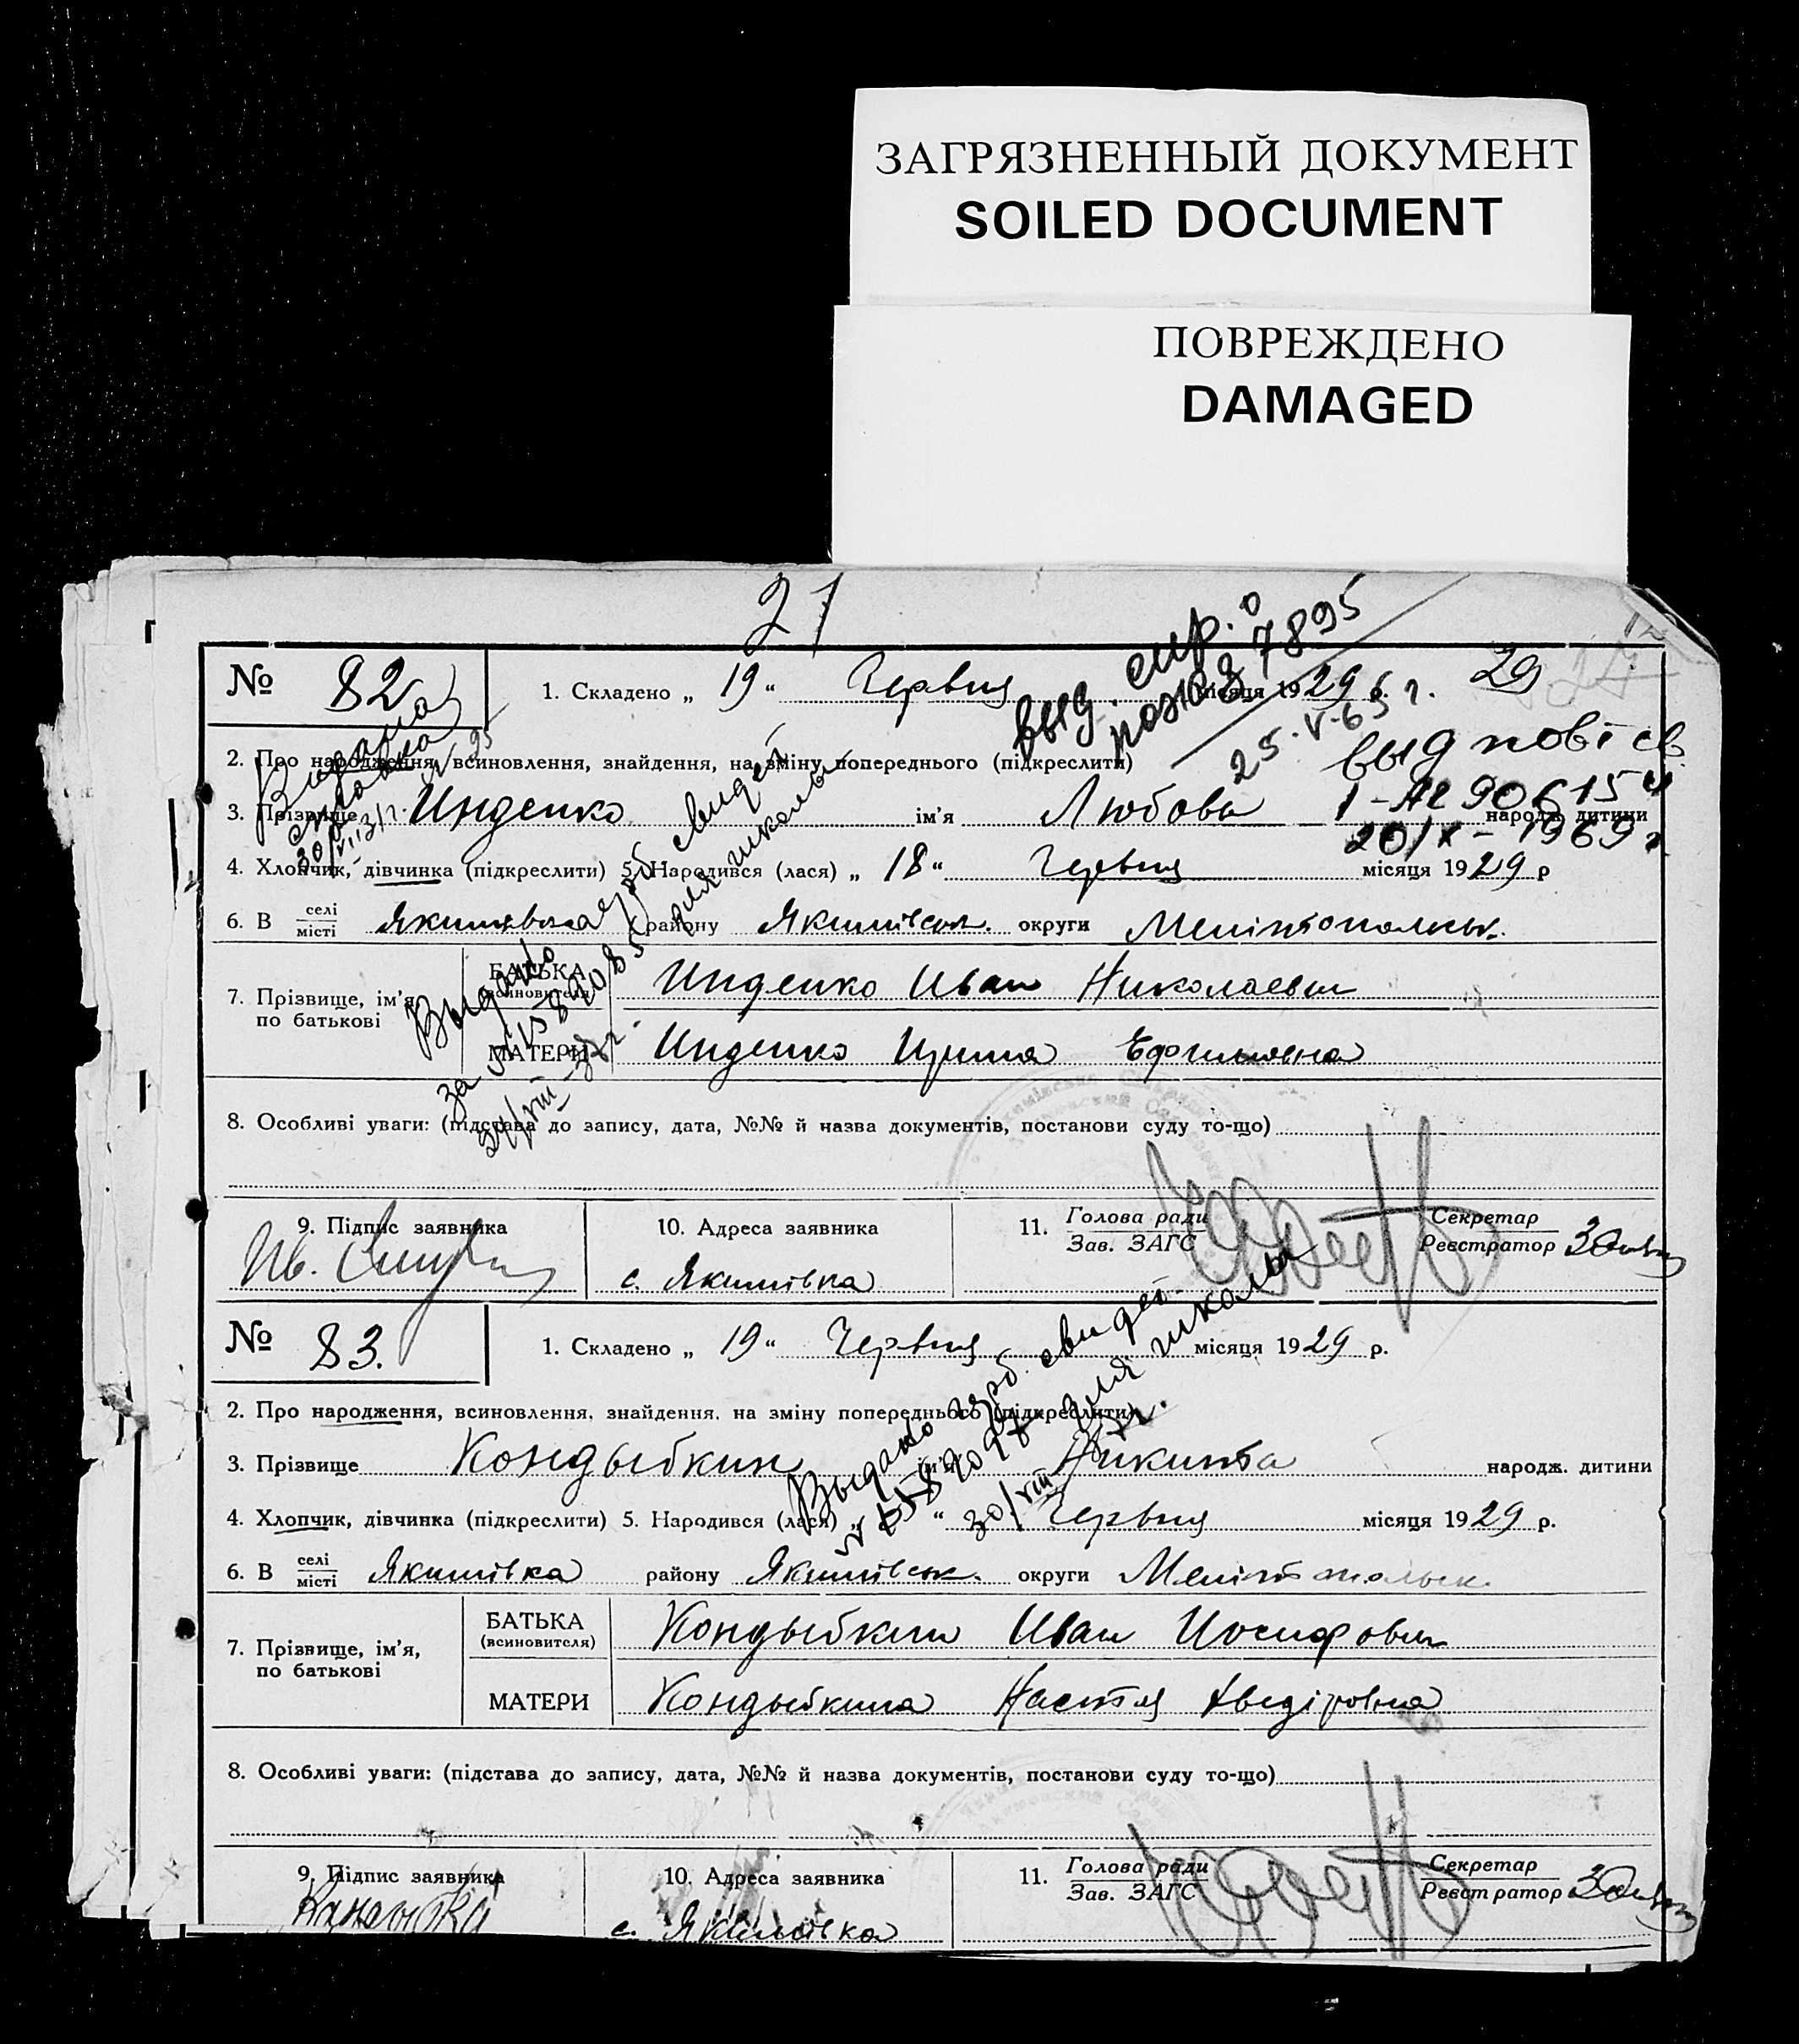 ЗАГРЯЗНЕННЫЙ ДОКУМЕНТ
SOILED DOCUMENT
ПОВРЕЖДЕНО
DAMAGED
21
№ 82 1. Складено „ 19 “ Червня місяця 1929 р. 29
выд. спр. о
рожд 7895
25.V-65 г.
2. Про народження, всиновлення, знайдення, на зміну попереднього (підкреслити)
выд повт св
I-АЕ 90615 4
20/X-1969 г
Видана
3. Прізвище Инденко ім’я Любовь народж. дитини
4. Хлопчик, дівчинка (підкреслити) 5. Народився (лася) „ 18 “ Червня місяця 1929 р
6. В селі місті Якимівка району Якимівськ. округи Мелітопольськ.
7. Прізвище, ім’я по батькові БАТЬКА (всиновителя) Инденко Иван Николаевич
МАТЕРИ Инденко Ирина Ефимовна
Выдано герб свидет
за № 1589085 для школы
8. Особливі уваги: (підстава до запису, дата, №№ й назва документів, постанови суду то-що)
9. Підпис заявника 10. Адреса заявника 11. Голова ради Зав. ЗАГС Секретар Реєстратор
с. Якимівка
№ 83. 1. Складено „ 19 “ Червня місяця 1929 р.
2. Про народження, всиновлення, знайдення, на зміну попереднього (підкреслити)
Выдано герб. свидет.
для школы
30/VIII
3. Прізвище Кондыбкин ім’я Никита народж. дитини
4. Хлопчик, дівчинка (підкреслити) 5. Народився (лася) „ “ Червня місяця 1929 р.
6. В селі місті Якимівка району Якимівськ. округи Мелітопольськ.
7. Прізвище, ім’я, по батькові БАТЬКА (всиновителя) Кондыбкин Иван Иосифович
МАТЕРИ Кондыбкина Настя
8. Особливі уваги: (підстава до запису, дата, №№ й назва документів, постанови суду то-що)
9. Підпис заявника 10. Адреса заявника 11. Голова ради Зав. ЗАГС Секретар Реєстратор
с. Якимівка